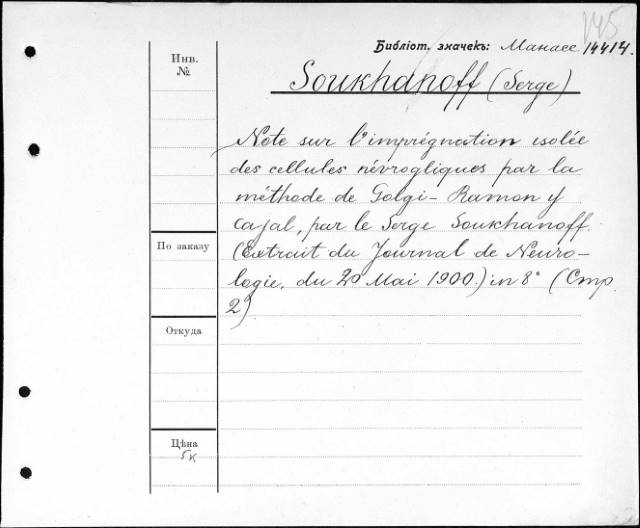 145
Библіот. значекъ: Манасе 14414.
Инв.
№
Soukhanoff (Serge)
Note sur l'imprégnation isolée
des cellules névrogliques par la
méthode de Golgi-Ramon y
Cajal, par le Serge Soukhanoff.
(Extrait du Journal de Neuro-
logie, du 20 Mai 1900.) in 8° (Стр.
2)
По заказу
Откуда
Цѣна
5к